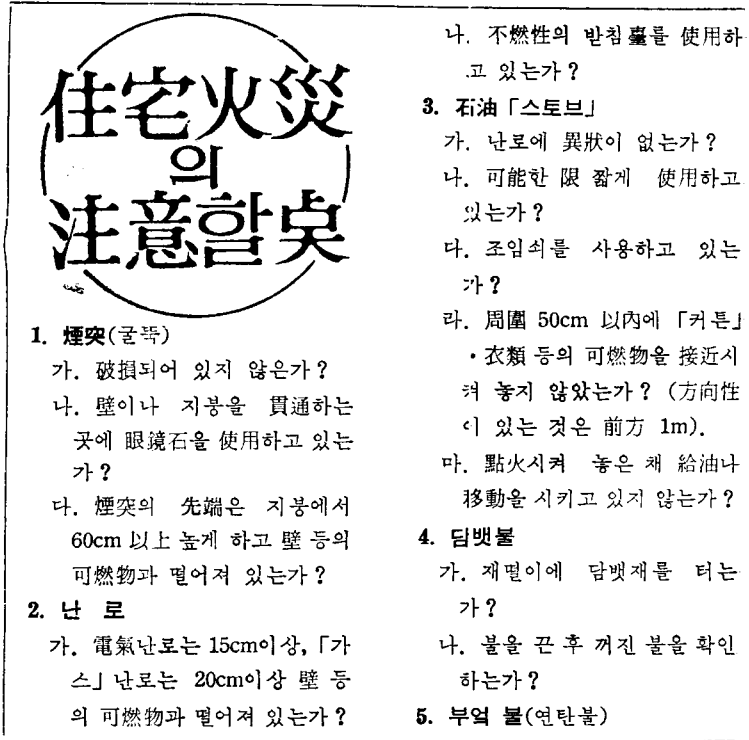 住宅火災
의
注意할 臾
1. 煙突(굴뚝)
가. 破損되어 있지 않은가?
나. 壁이나 지붕을 貫通하는
곳에 眼鏡石을 使用하고 있는
가?
다. 煙突의 先端은 지붕에서
60cm 以上 높게 하고 壁 등의
可燃物과 떨어져 있는가?
2. 난 로
가. 電氣난로는 15cm이상, 「가
스」 난로는 20cm이상 壁 등
의 可燃物과 떨어져 있는가?
나. 不燃性의 받침臺를 使用하
고 있는가?
3. 石油「스토브」
가. 난로에 異狀이 없는가?
나. 可能한 限 짧게 使用하고
있는가?
다. 조임쇠를 사용하고 있는
가?
라. 周圍 50cm 以內에 「커튼」
・衣類 등의 可燃物을 接近시
켜 놓지 않았는가? (方向性
이 있는 것은 前方 1m).
마. 點火시켜 놓은 채 給油나
移動을 시키고 있지 않는가?
4. 담뱃불
가. 재떨이에 담뱃재를 터는
가?
나. 불을 끈 후 꺼진 불을 확인
하는가?
5. 부엌 불(연탄불)